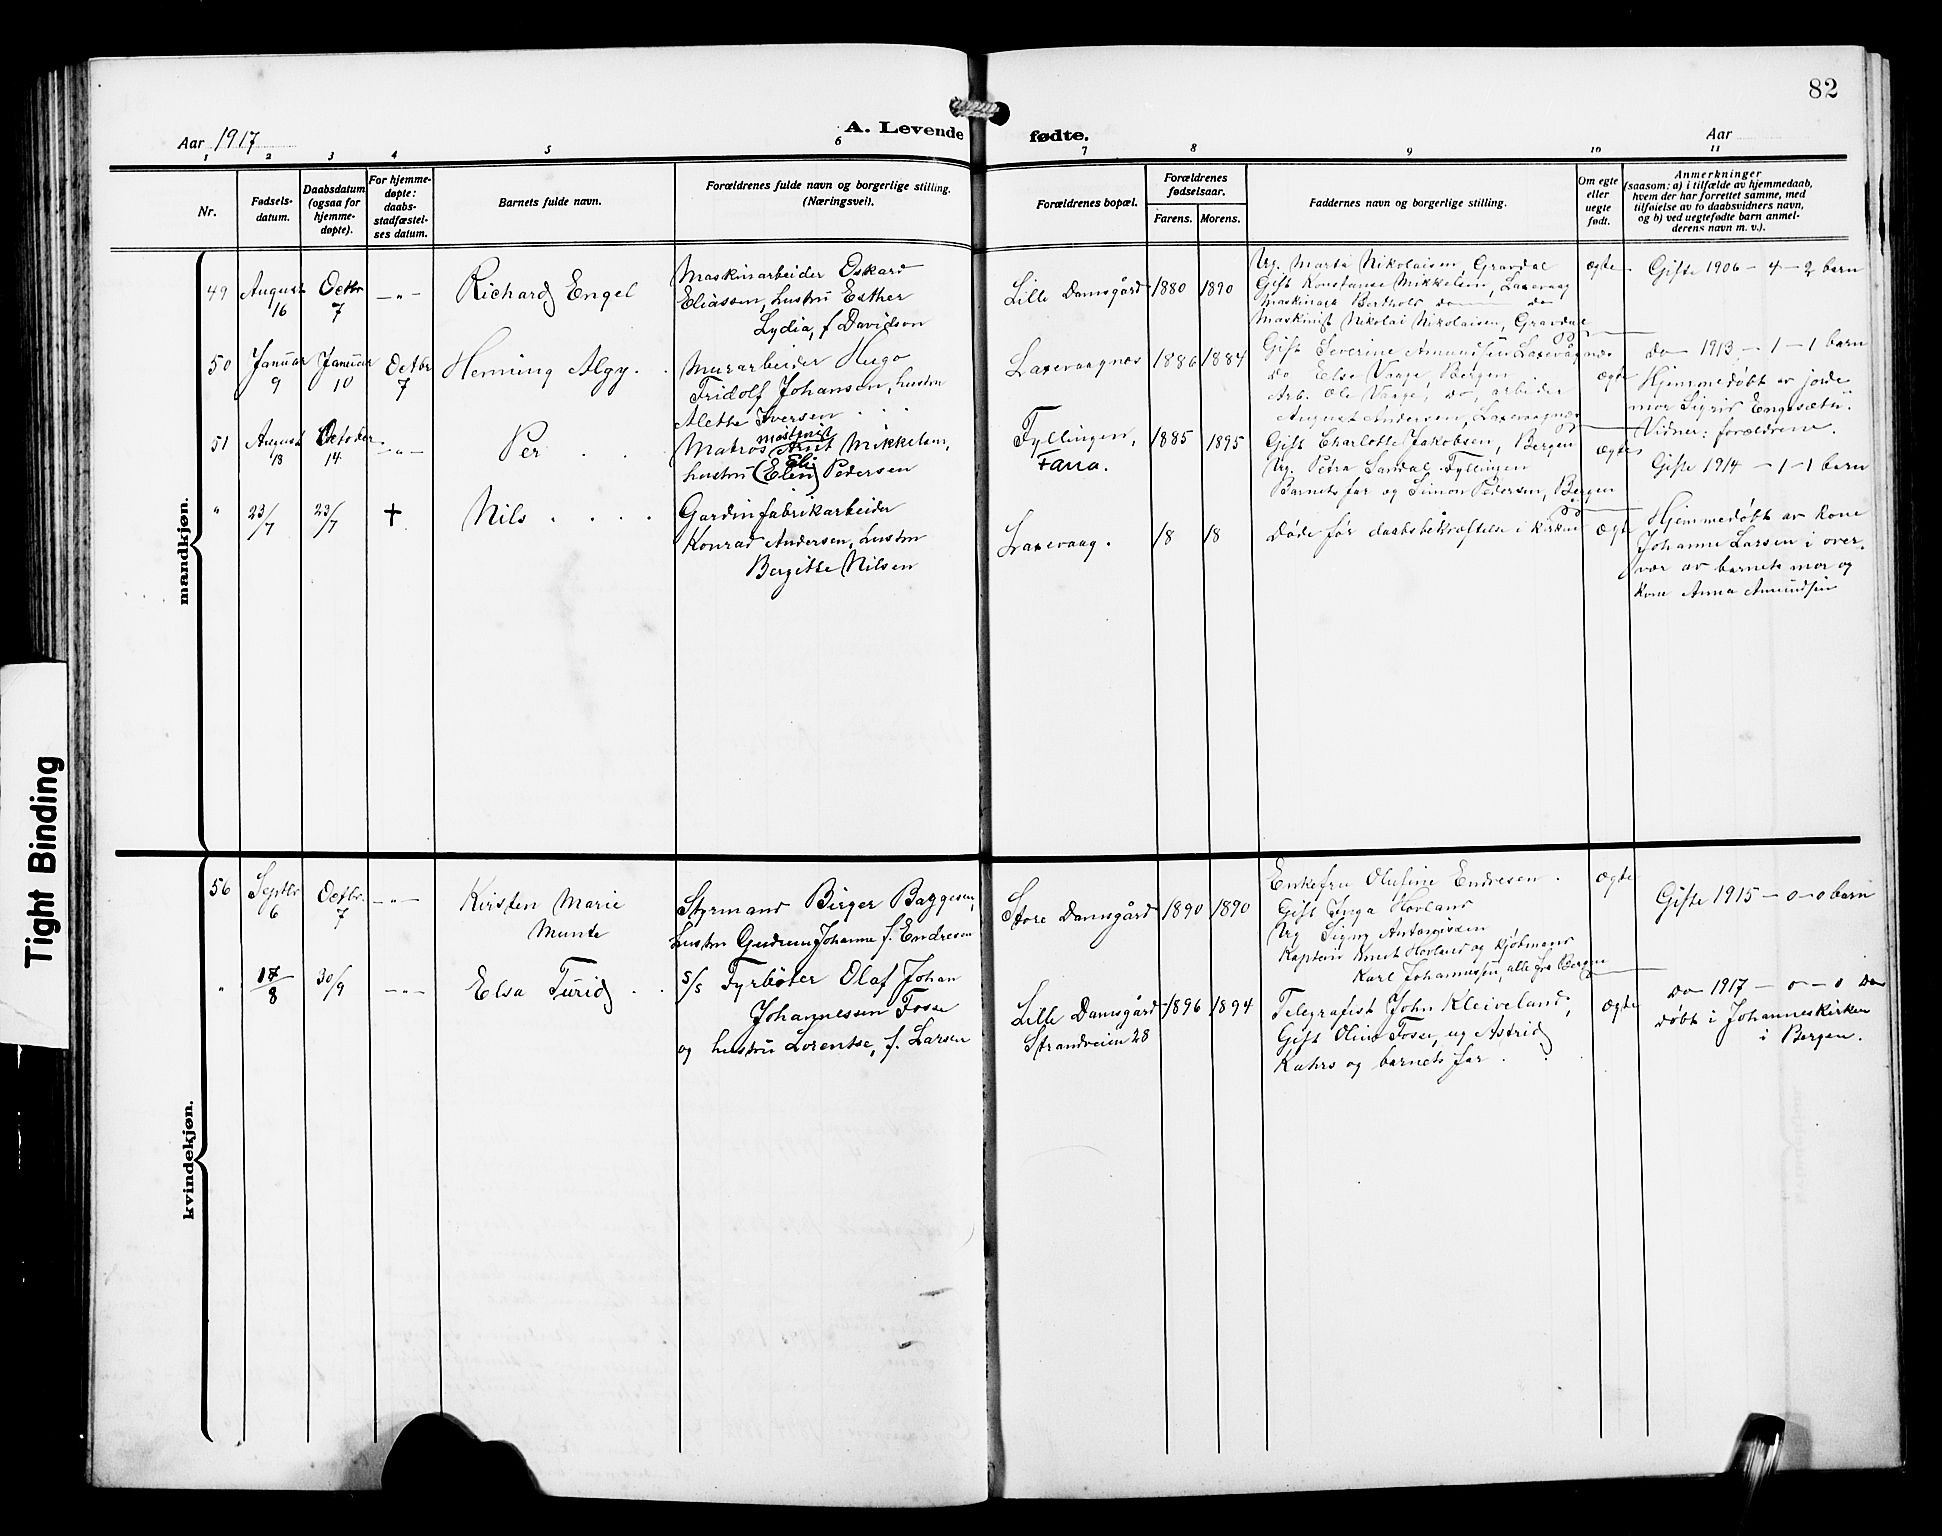 82
Aar 1917
A. Levende fødte.
Aar
1 2 3 4 5 6 7 8 9 10 11
Nr.
Fødsels-
datum.
Daabsdatum
(ogsaa for
hjemme-
døpte).
For hjemme-
døpte:
daabs-
stadfæstel-
ses datum.
Barnets fulde navn.
Forældrenes fulde navn og borgerlige stilling.
(Næringsvei).
Forældrenes bopæl.
Forældrenes
fødselsaar.
Farens. Morens.
Faddernes navn og borgerlige stilling.
Om egte
eller
uegte
født.
Anmerkninger
(saasom: a) i tilfælde av hjemmedaab,
hvem der har forrettet samme, med
tilføielse av to daabsvidners navn,
og b) ved uegtefødte barn anmel-
derens navn m. v.).
mandkjøn.
49
August
16
Octbr
7
-"-
Richard Engel
Maskinarbeider Oskard
Eliassen, hustru Esther
Lydia, f Davidson
Lille Damsgård
1880
1890
Ug. Marta Nikolaisen, Gravdal
Gift Konstanse Mikkelsen, Laxevaag
Maskinass Berthold do do
Maskinist Nikolai Nikolaisen, Gravdal
ægte
Gifte 1906 - 4 - 2 barn
50
Januar
9
Januar
10
Octbr
7
Henning Algy.
Murarbeider Hugo
Fridolf Johansen, hustru
Alette Iversen
Laxevaagnæs
1886
1884
Gift Severine Amundsen Laxevågnæs
do Else Vaage, Bergen
Arb. Ole Vaage, do, arbeider
August Andersen, Laxevaagnæs
ægte
do 1913 - 1 - 1 barn
Hjemmedøbt av jorde
mor Sigrid Engesætter.
Vidner: forældrene.
51
August
18
October
14
-"-
Per
Matros Arnt Mikkelsen,
hustru (Elen) Pedersen
Eli
Fyllingen,
Fana.
1885
1895
Gift Charlotte Jakobsen, Bergen
Ug. Petra Sandal Fyllingen
Barnets far og Simon Pedersen, Bergen
ægte
Gifte 1914 - 1 - 1 barn
"
23/7
23/7
+
Nils
Gardinfabrikarbeider
Konrad Andersen, hustru
Bergitte Nilsen
Laxevaag.
18
18
Døde før daabsbekræftelse i kirken
ægte
Hjemmedøbt av kone
Johanne Larsen i over-
vær av barnets mor og
kone Anna Amundsen
kvindekjøn.
56
Septbr
6
Octbr.
7
-"-
Kirsten Marie
Munte
Styrmand Birger Baggesen,
hustru Gudrun Johanne f. Endresen
Store Damsgård
1890
1890
Enkefru Olufine Endresen.
Gift Inga Hovland
Ug Signy Antonissen
Kaptein Knut Hovland og kjøbmand
Karl Johannesen, alle fra Bergen
ægte
Gifte 1915 - 0 - 0 barn
"
17/8
30/9
-"-
Elsa Turid
s/s Fyrbøter Olaf Johan
Johannessen Fosse
og hustru Lorentse, f. Larsen
Lille Damsgård
Strandveien 28
1896
1894
Telegrafist John Kleiveland,
Gift Olina Fosse, ug Astrid
Kahrs og barnets far.
ægte
do 1917 - 0 - 0 do
døbt i Johanneskirken
i Bergen.
Tight Binding